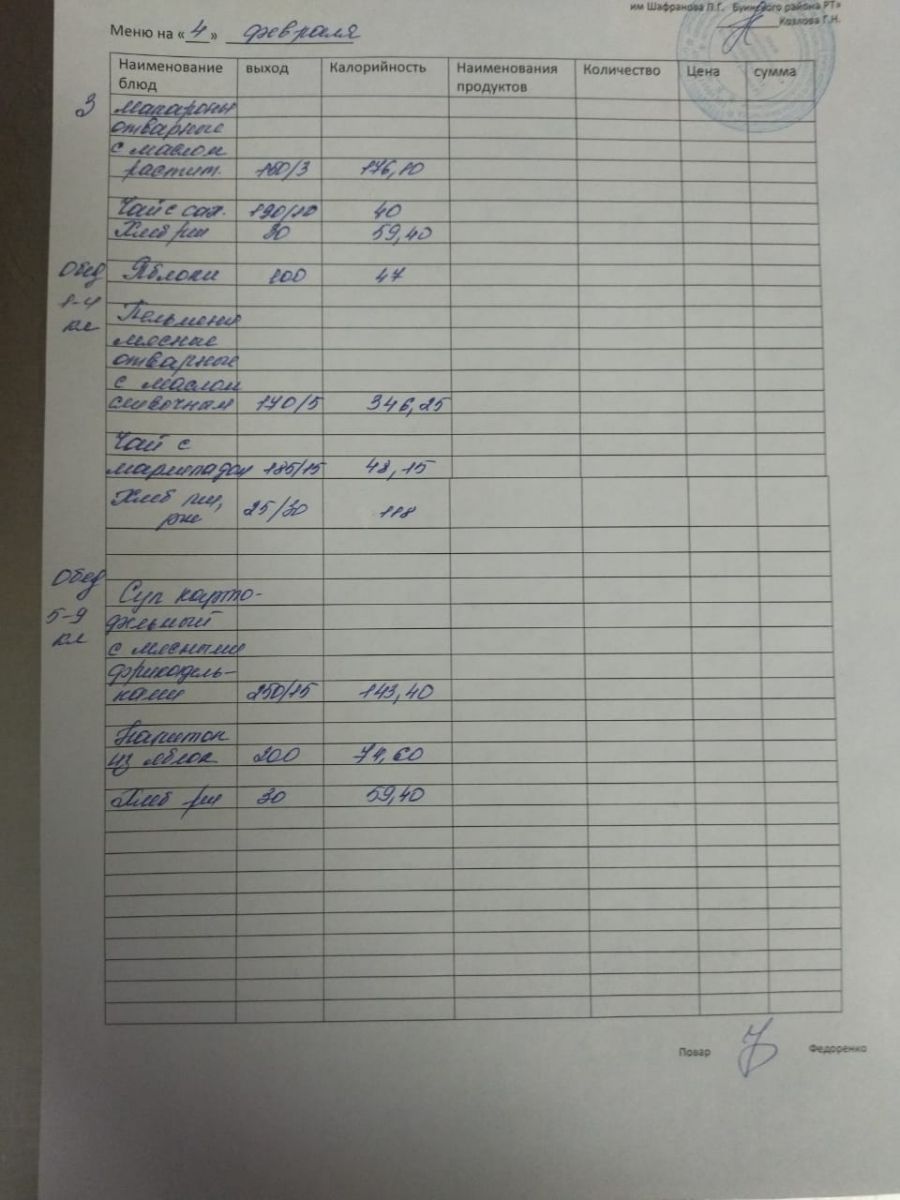 им Шафранова П.Г. Буинского района РТ»
Козлова Г.Н.
Меню на «4» февраля
Наименование блюд выход Калорийность Наименования продуктов Количество Цена сумма
З
макароны
отварные
с маслом
растит. 150/3 176,10
Чай с сах. 190/10 40
Хлеб пш 30 59,40
Обед Яблоки 100 47
1-4
кл Пельмени
мясные
отварные
с маслом
сливочным 170/5 346,25
Чай с
185/15 48,15
Хлеб пш,
рж 25/30 118
Обед
Суп карто-
5-9 фельный
кл с мясными
фрикадель-
ками 250/15 143,40
Напиток
из яблок 200 74,60
Хлеб пш 30 59,40
Повар Федоренко